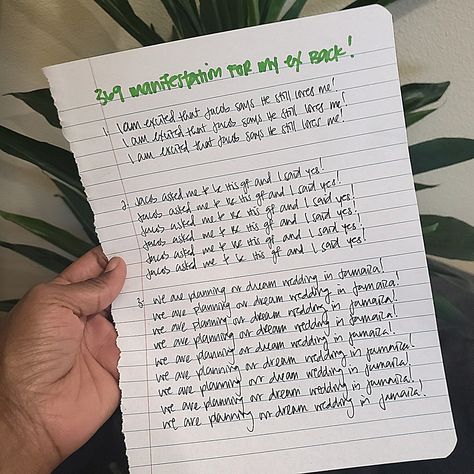 369 manifestation for my ex Back!
1. I am excited that Jacob says He still loves me!
I am excited that Jacob says He still loves me!
I am excited that Jacob says He still loves me!
2. Jacob asked me to be his gf and I said yes!
Jacob asked me to be his gf and I said yes!
Jacob asked me to be his gf and I said yes!
Jacob asked me to be his gf and I said yes!
Jacob asked me to be his gf and I said yes!
Jacob asked me to be his gf and I said yes!
3. We are planning our dream wedding in Jamaica!
We are planning our dream wedding in Jamaica!
We are planning our dream wedding in Jamaica!
We are planning our dream wedding in Jamaica!
We are planning our dream wedding in Jamaica!
We are planning our dream wedding in Jamaica!
We are planning our dream wedding in Jamaica!
We are planning our dream wedding in Jamaica!
We are planning our dream wedding in Jamaica!